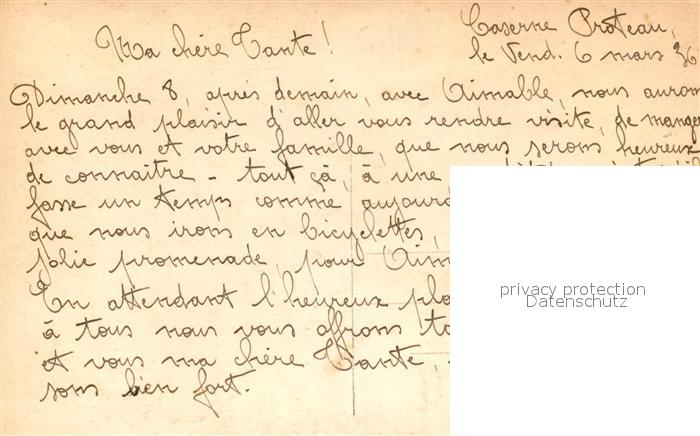 Caserne Proteau,
le Vend. 6 mars 36
Ma chère Tante!
Dimanche 8, après demain, avec Aimable, nous aurons
le grand plaisir d'aller vous rendre visite, de manger
avec vous et votre famille, que nous serons heureux
de connaître - tout çà, à une
fasse un temps comme aujourd
que nous irons en bicyclettes,
jolie promenade, pour Aim
En attendant l'heureux pla
à tous nous vous offrons to
et vous ma chère Tante,
sons bien fort.
privacy protection
Datenschutz